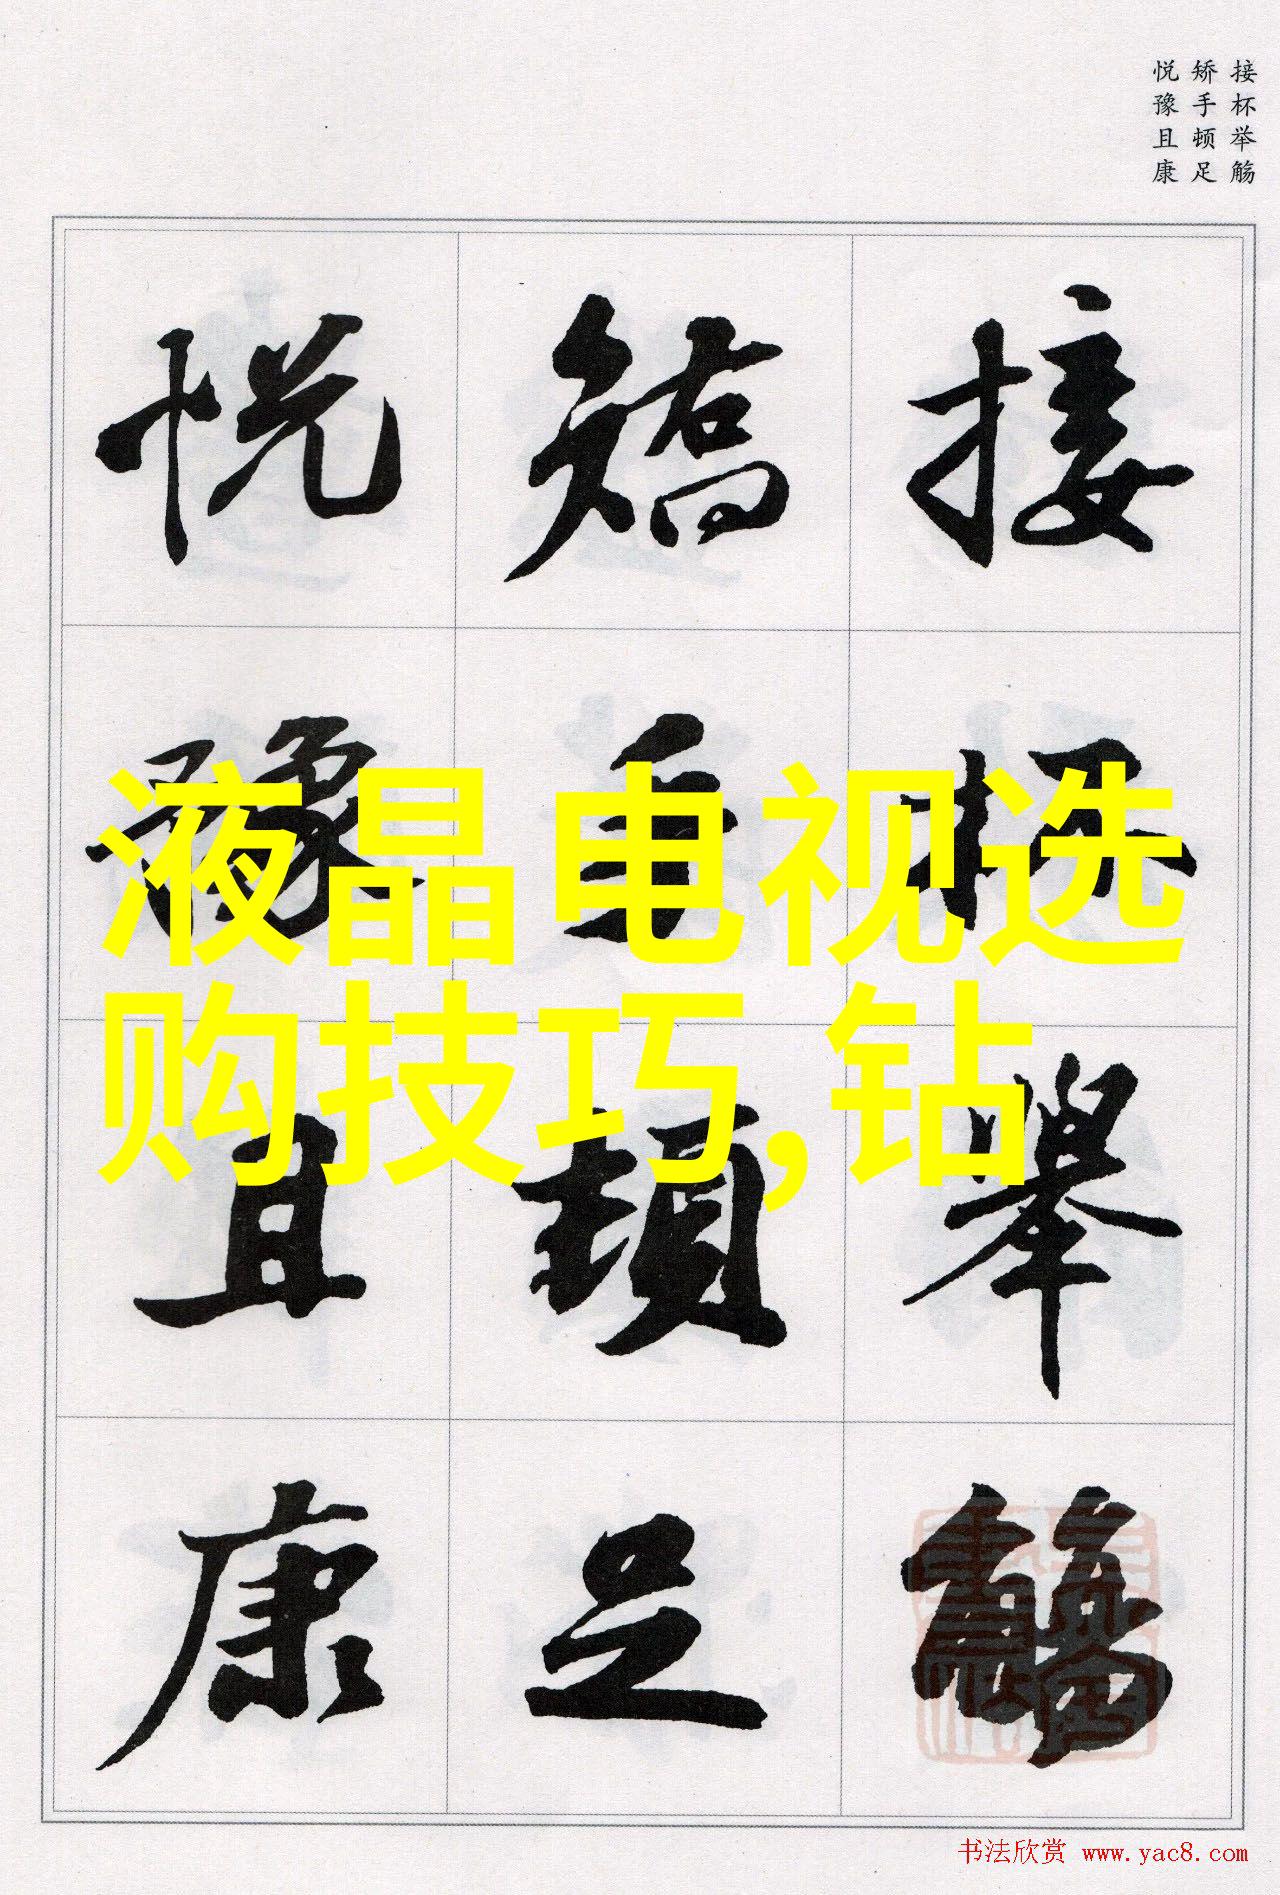 接杯举觞
矫手顿足
悦豫且康
接杯舉觴
矯手頓足
悦豫且康
液晶电视选
购技巧,钻
书法欣赏 www.yac8.com